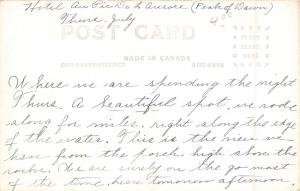 Hotel Au Pic De L'Aurore (Peak of Dawn)
Thurs. July
40¢
POST CARD
MADE IN CANADA
CORRESPONDENCE ADDRESS
PLACE
STAMP
HERE
Where we are spending the night
Thurs. A beautiful spot, we rode
along for miles, right along the edge
of the water. This is the view we
have from the porch, high above the
rocks. We are surely on the go most
of the time, leave tomorrow afternoon